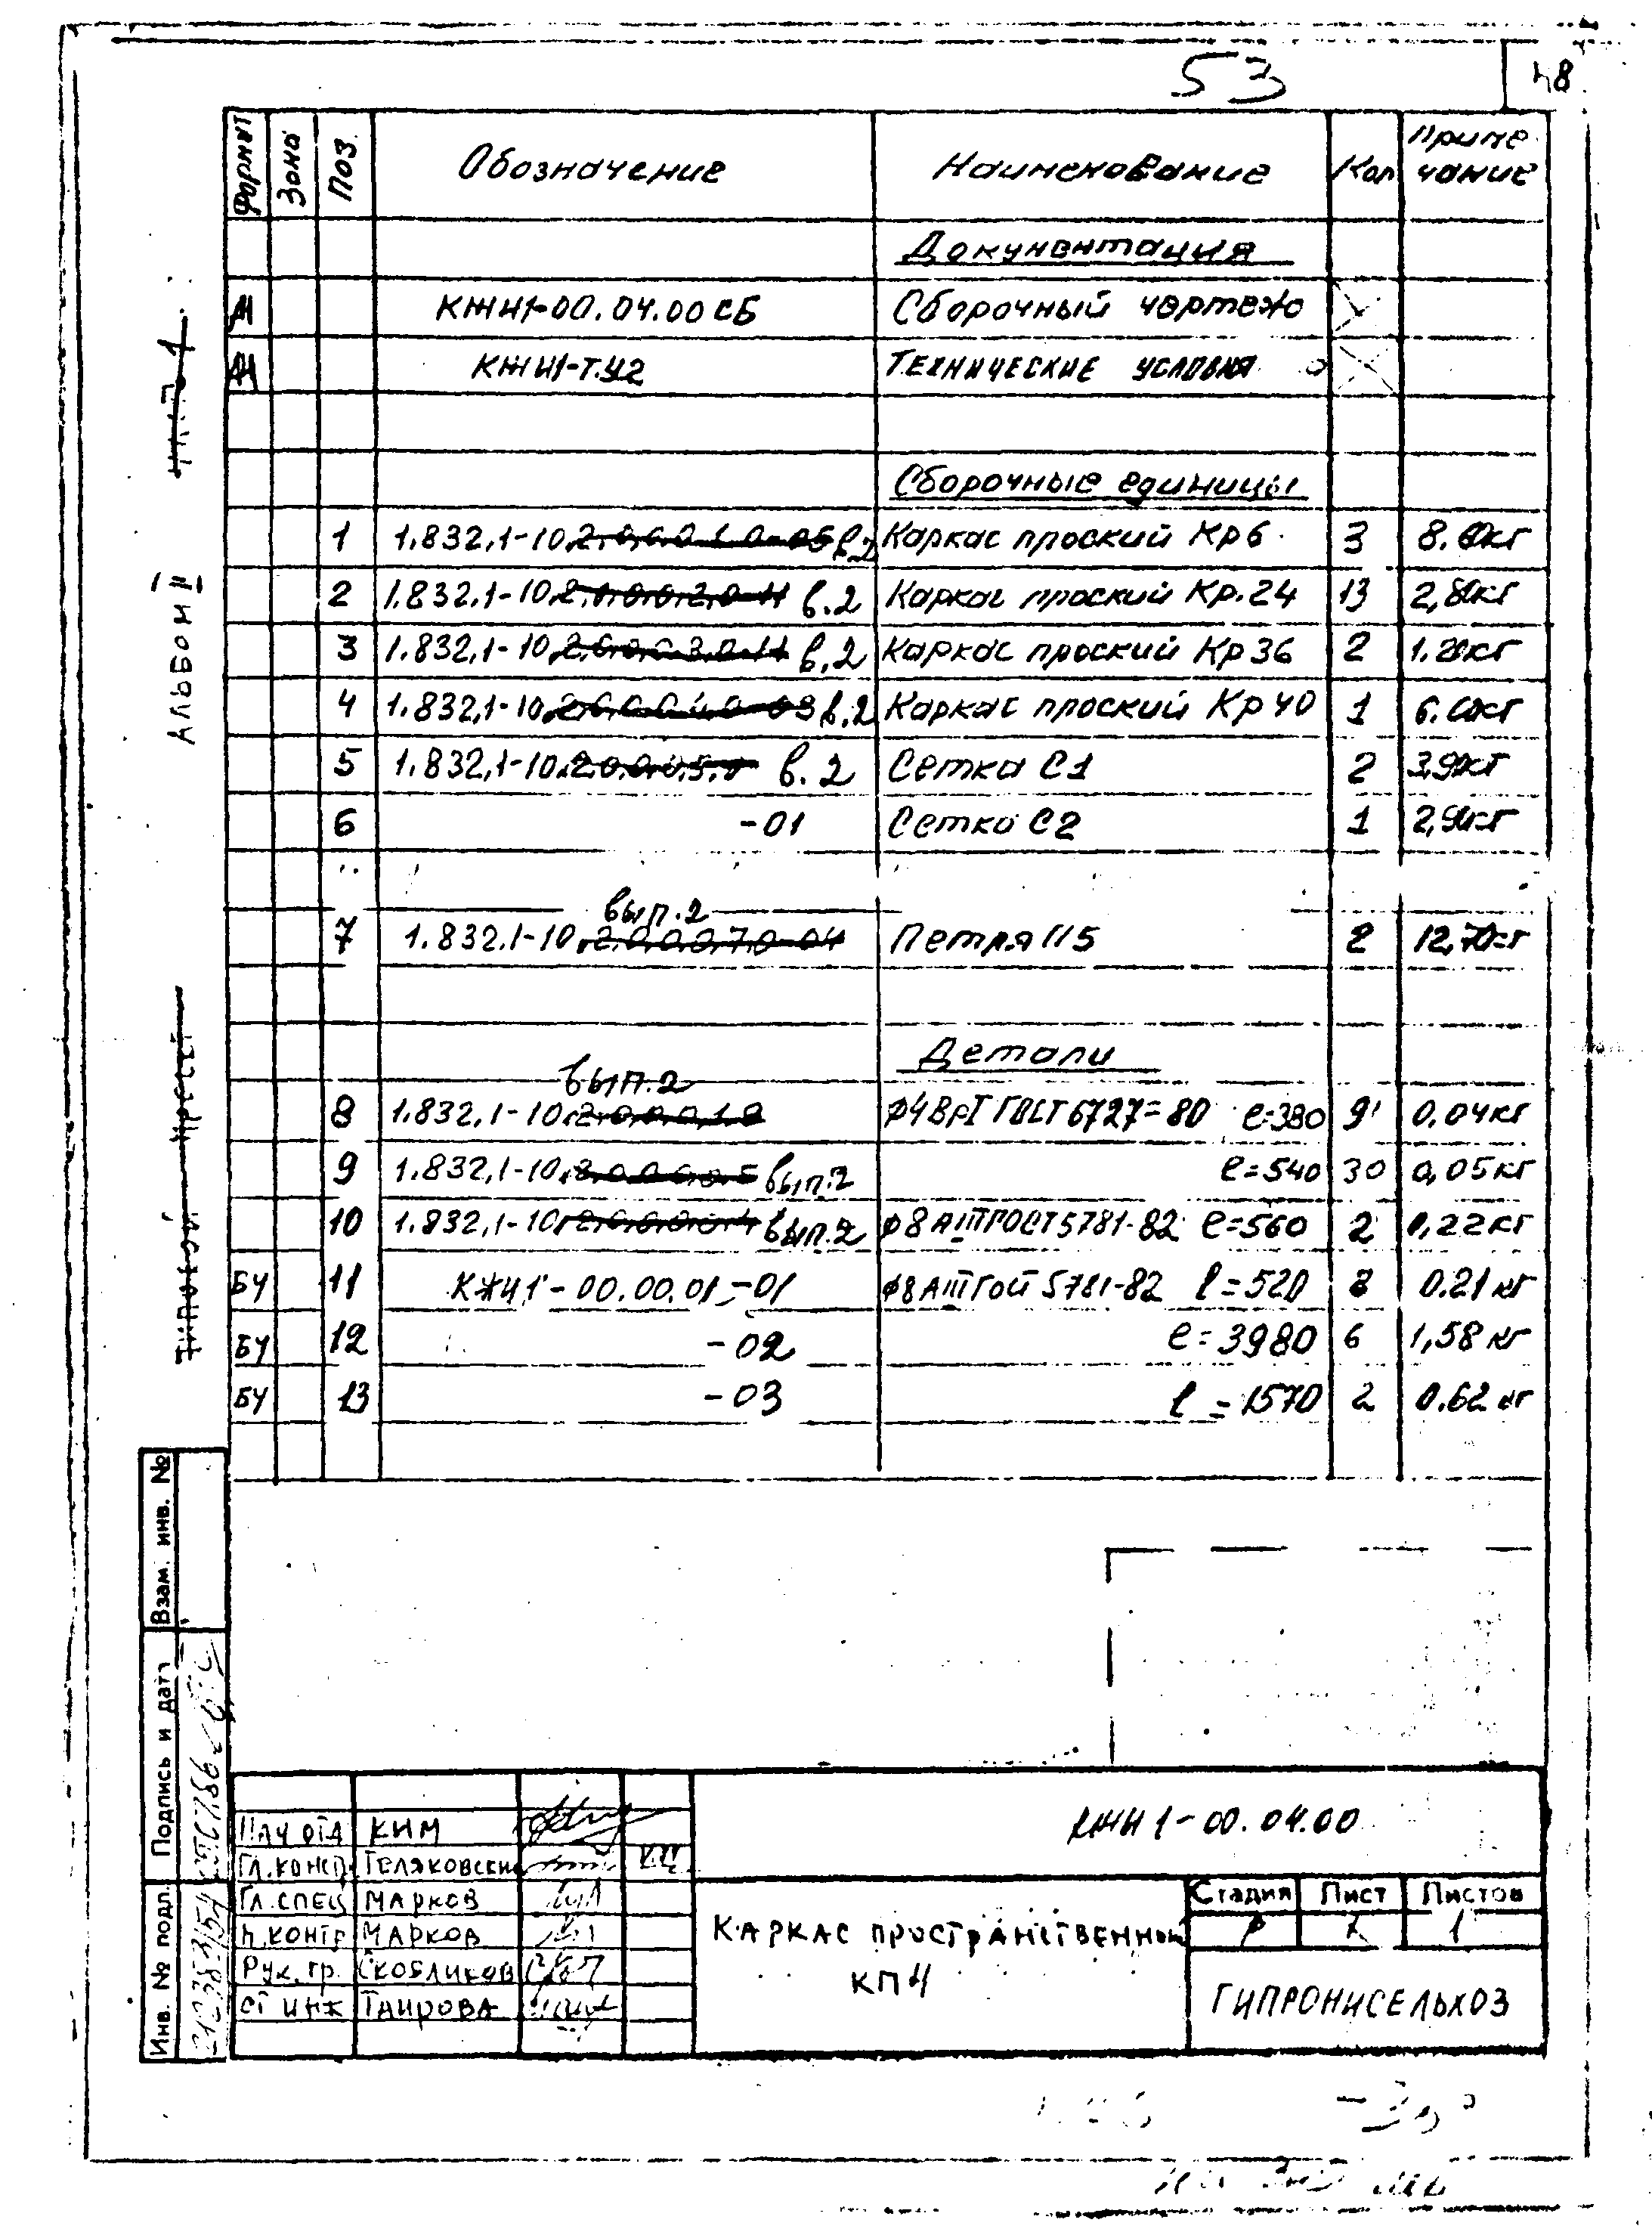 53
48
Формат Зона Поз. Обозначение Наименование Кол Приме чание
Документация
КЖИ1-00.04.00 СБ Сборочный чертеж
КЖИ1-ТУ2 Технические условия
Сборочные единицы
1 1.832.1-10.2.0.0.0.1.0-05 в.2 Каркас плоский Кр6 3
2 1.832.1-10.2.0.0.0.2.0-11 в.2 Каркас плоский Кр.24 13
3 1.832.1-10.2.0.0.0.3.0-11 в.2 Каркас плоский Кр36 2
4 1.832.1-10.2.0.0.0.4.0-03 в.2 Каркас плоский Кр40 1
5 1.832.1-10.2.0.0.0.5.0 в.2 Сетка С1 2
6 -01 Сетка С2 1
вып.2
7 1.832.1-10.2.0.0.0.7.0-04 Петля П5 2
Детали
вып.2
8 1.832.1-10 ф4ВрI ГОСТ 6727-80 ℓ=380 9 0.04кг
9 1.832.1-10 вып.2 ℓ=540 30 0,05кг
10 1.832.1-10 вып.2 ф8АIII ГОСТ 5781-82 ℓ=560 2 0,22кг
БЧ 11 КЖИ1-00.00.01-01 ф8АIII ГОСТ 5781-82 ℓ=520 0.21 кг
БЧ 12 -02 ℓ=3980 6 1,58 кг
БЧ 13 -03 ℓ=1570 2 0.62 кг
АЛЬБОМ II
Типовой проект
Взам. инв. №
Подпись и дата
Инв. № подл.
Нач отд КИМ
Гл. конст. Теляковский
Гл. спец Марков
Н. контр Марков
Рук. гр. Скобликов
Ст инж Таирова
КЖИ1-00.04.00
Каркас пространственный
КП4
Стадия Лист Листов
Р 1
ГИПРОНИСЕЛЬХОЗ